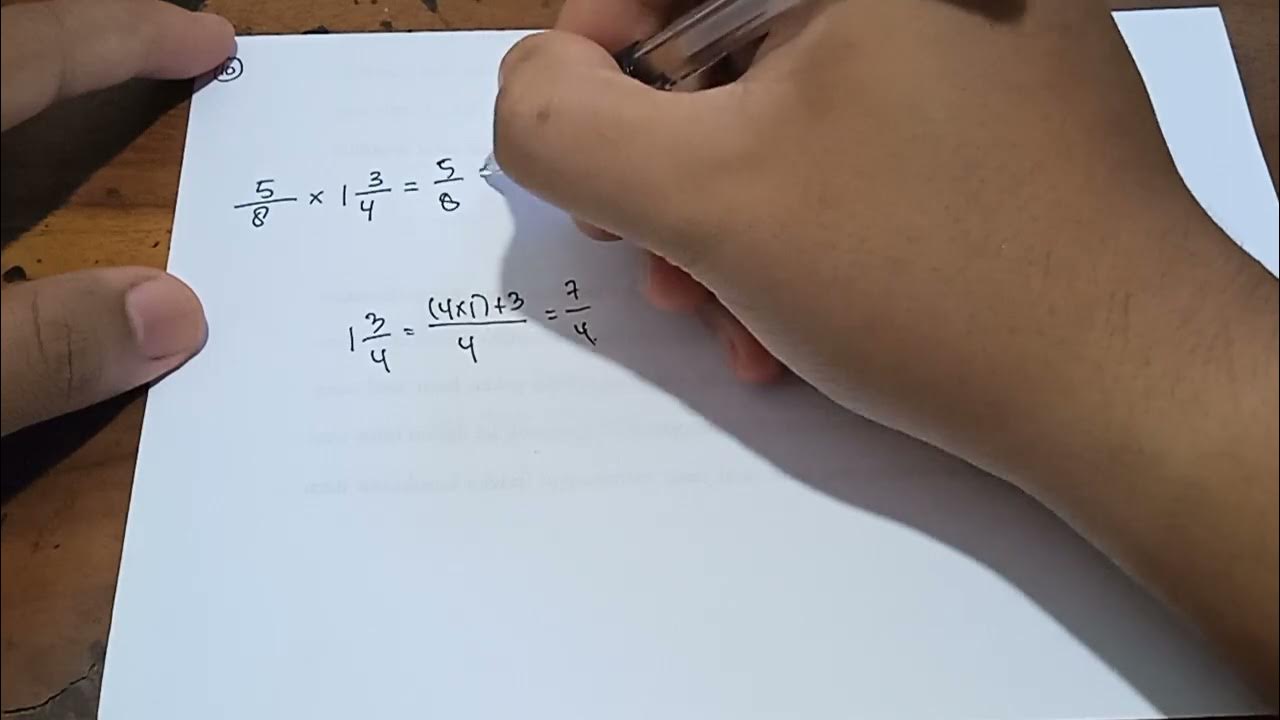 10
5/8 × 1 3/4 = 5/8
1 3/4 = (4×1)+3/4 = 7/4